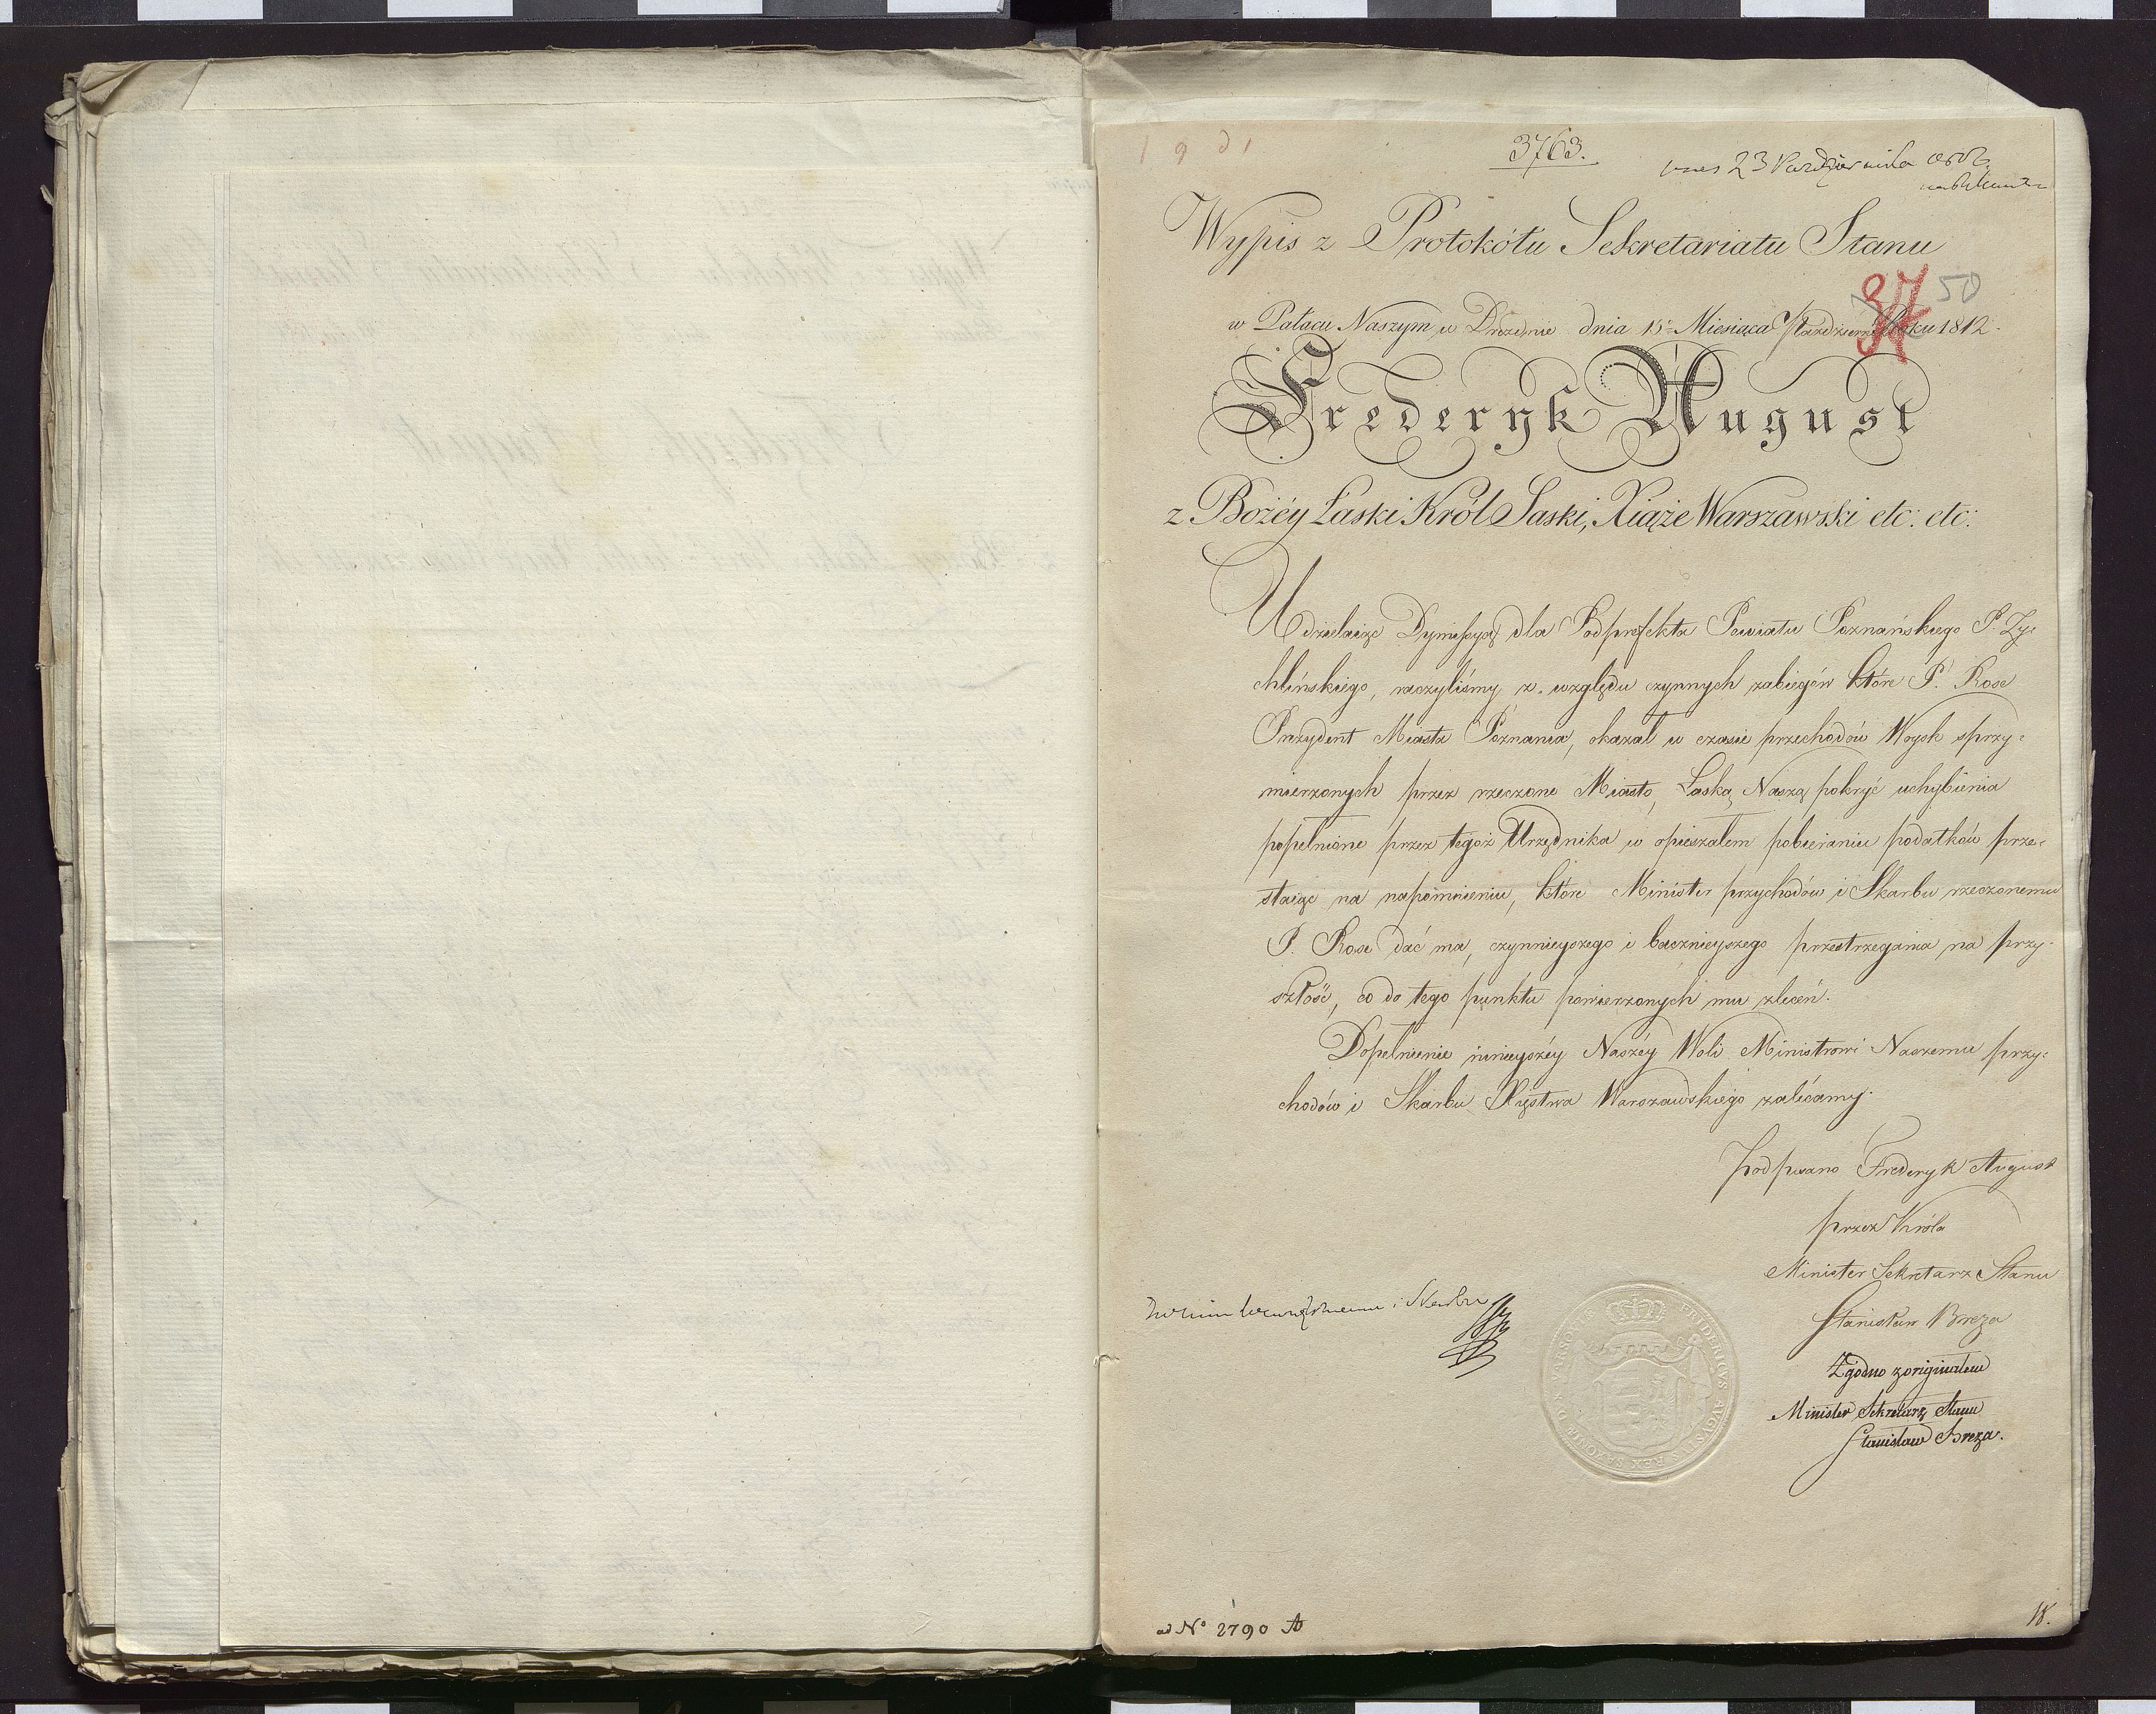 3763.
23 Października
Wypis z Protokółu Sekretariatu Stanu
37 50
w Pałacu Naszym w Dreźnie dnia 15. Miesiąca Paździer: Roku 1812.
Frederyk August
z Bożéy Łaski Król Saski, Xiąże Warszawski etc: etc:
Udzielaiąc Dymissyą dla Podprefekta Powiatu Poznańskiego P. Zy-
chlińskiego, raczyliśmy z względu czynnych zabiegów które P. Rose
Prezydent Miasta Poznania, okazał w czasie przechodów Woysk sprzy-
mierzonych przez rzeczone Miasto, Łaską Naszą pokryć uchybienia
popełnione przez tegoż Urzędnika w opieszałem pobieraniu podatków prze-
staiąc na napomnieniu, które Minister przychodów i Skarbu rzeczonemu
P. Rose dać ma, czynnieyszego i bacznieyszego przestrzegania na przy-
szłość, co do tego punktu powierzonych mu zleceń.
Dopełnienie ninieyszéy Naszéy Woli Ministrowi Naszemu przy-
chodów i Skarbu Xięstwa Warszawskiego zalécamy.
podpisano Frederyk August
przez Króla
Minister Sekretarz Stanu
Stanisław Breza
Zgodno z originałem
Minister Sekretarz Stanu
Stanisław Breza.
i Skarbu
FRIDERICVS AVGVSTVS REX SAXONIÆ DVX VARSO
ad No 2790
18.